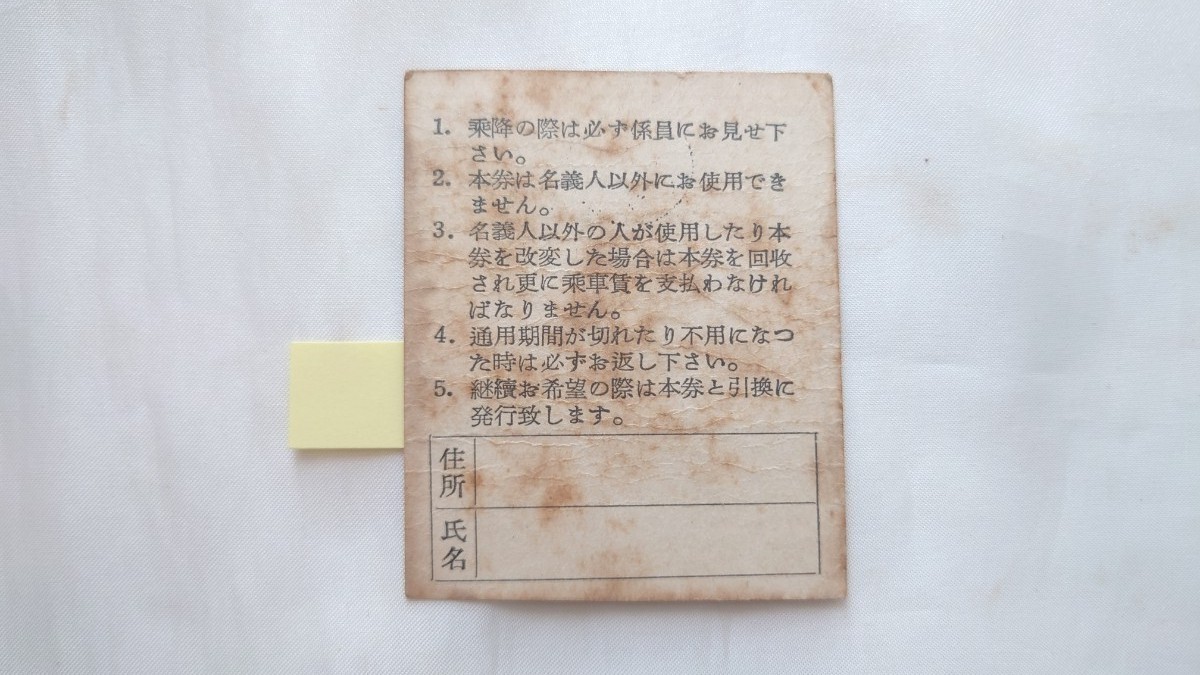 1. 乗降の際は必ず係員にお見せ下
さい。
2. 本券は名義人以外にお使用でき
ません。
3. 名義人以外の人が使用したり本
券を改変した場合は本券を回収
され更に乗車賃を支払わなけれ
ばなりません。
4. 通用期間が切れたり不用になつ
た時は必ずお返し下さい。
5. 継続お希望の際は本券と引換に
発行致します。
住所
氏名